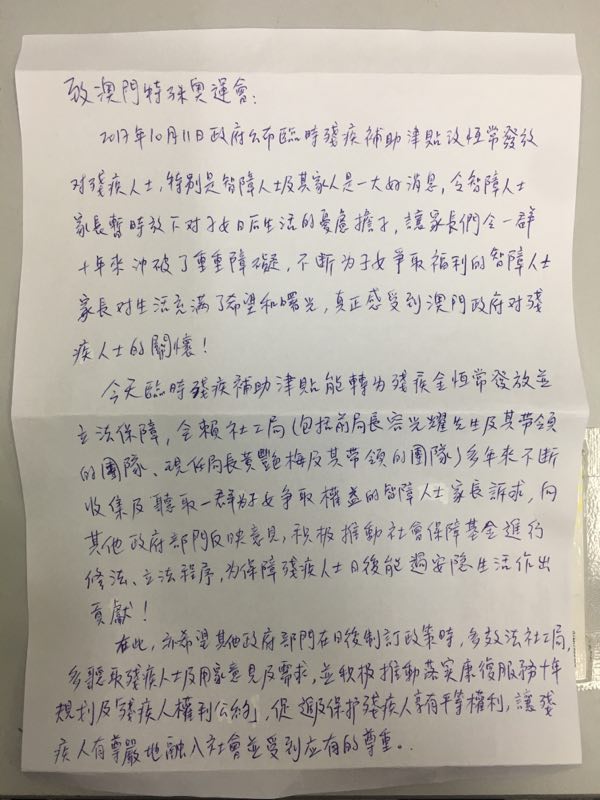 致澳門特殊奧運會:
2017年10月11日政府公布臨時殘疾補助津貼改恆常發放
对殘疾人士,特別是智障人士及其家人是一大好消息,令智障人士
家長暫時放下对子女日后生活的憂慮擔子,讓家長們令一群
十年來冲破了重重障礙,不断为子女爭取福利的智障人士
家長对生活充滿了希望和曙光,真正感受到澳門政府对殘
疾人士的關懷!
今天臨時殘疾補助津貼能轉为殘疾金恆常發放並
立法保障,全賴社工局(包括前局長容光耀先生及其帶領
的團隊、現任局長黃艷梅及其帶領的團隊)多年來不断
收集及聽取一群为子女爭取權益的智障人士家長訴求,向
其他政府部門反映意見,积极推動社會保障基金進行
修法、立法程序,为保障殘疾人士日後能過安隐生活作出
貢獻!
在此,亦希望其他政府部門在日後制訂政策時,多效法社工局,
多聽取殘疾人士及用家意見及需求,並积极推動落实康復服務十年
規划及「殘疾人權利公約」,促進及保护殘疾人享有平等權利,讓殘
疾人有尊嚴地融入社會並受到应有的尊重。